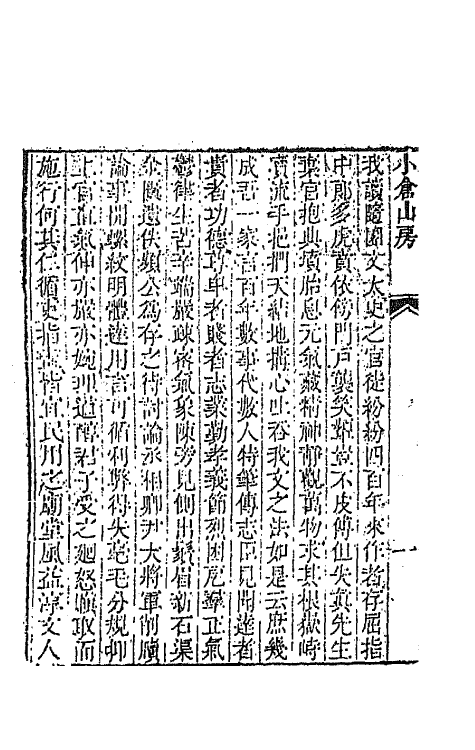 小倉山房
一
我讀隨園文太史之官徒紛紛四百年來作者存屈指
中郎多虎賁依傍門戶襲矣顰豈不皮傅但失眞先生
棄官抱典墳胎息元氣藏精神靜觀萬物求其根嶽峙
瀆流手把捫天結地構心吐吞我文之法如是云庶幾
成一家言百年數事代數人特筆傳志臣見聞達者
貴者功德尊卑者賤者志業勤孝義節烈困厄犖正氣
鬱律生苦辛端嚴疎宕氣象陳旁見側出
遺佚類公為存之待討論丞相卿尹大將軍削牘
論事開螺紋明體達用言可循利弊得失毫毛分規仰
上官直氣伸亦嚴亦婉理道醇君子受之廻怒嗔取而
施行何其仁循吏指掌皆宜民用之廟堂風益淳文人